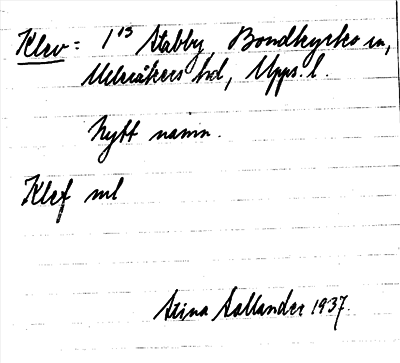 Klev = 1¹³ Stabby, Bondkyrko sn,
Ulleråkers hd, Upps. l.
Nytt namn.
Klef ml
Stina Sallander 1937.